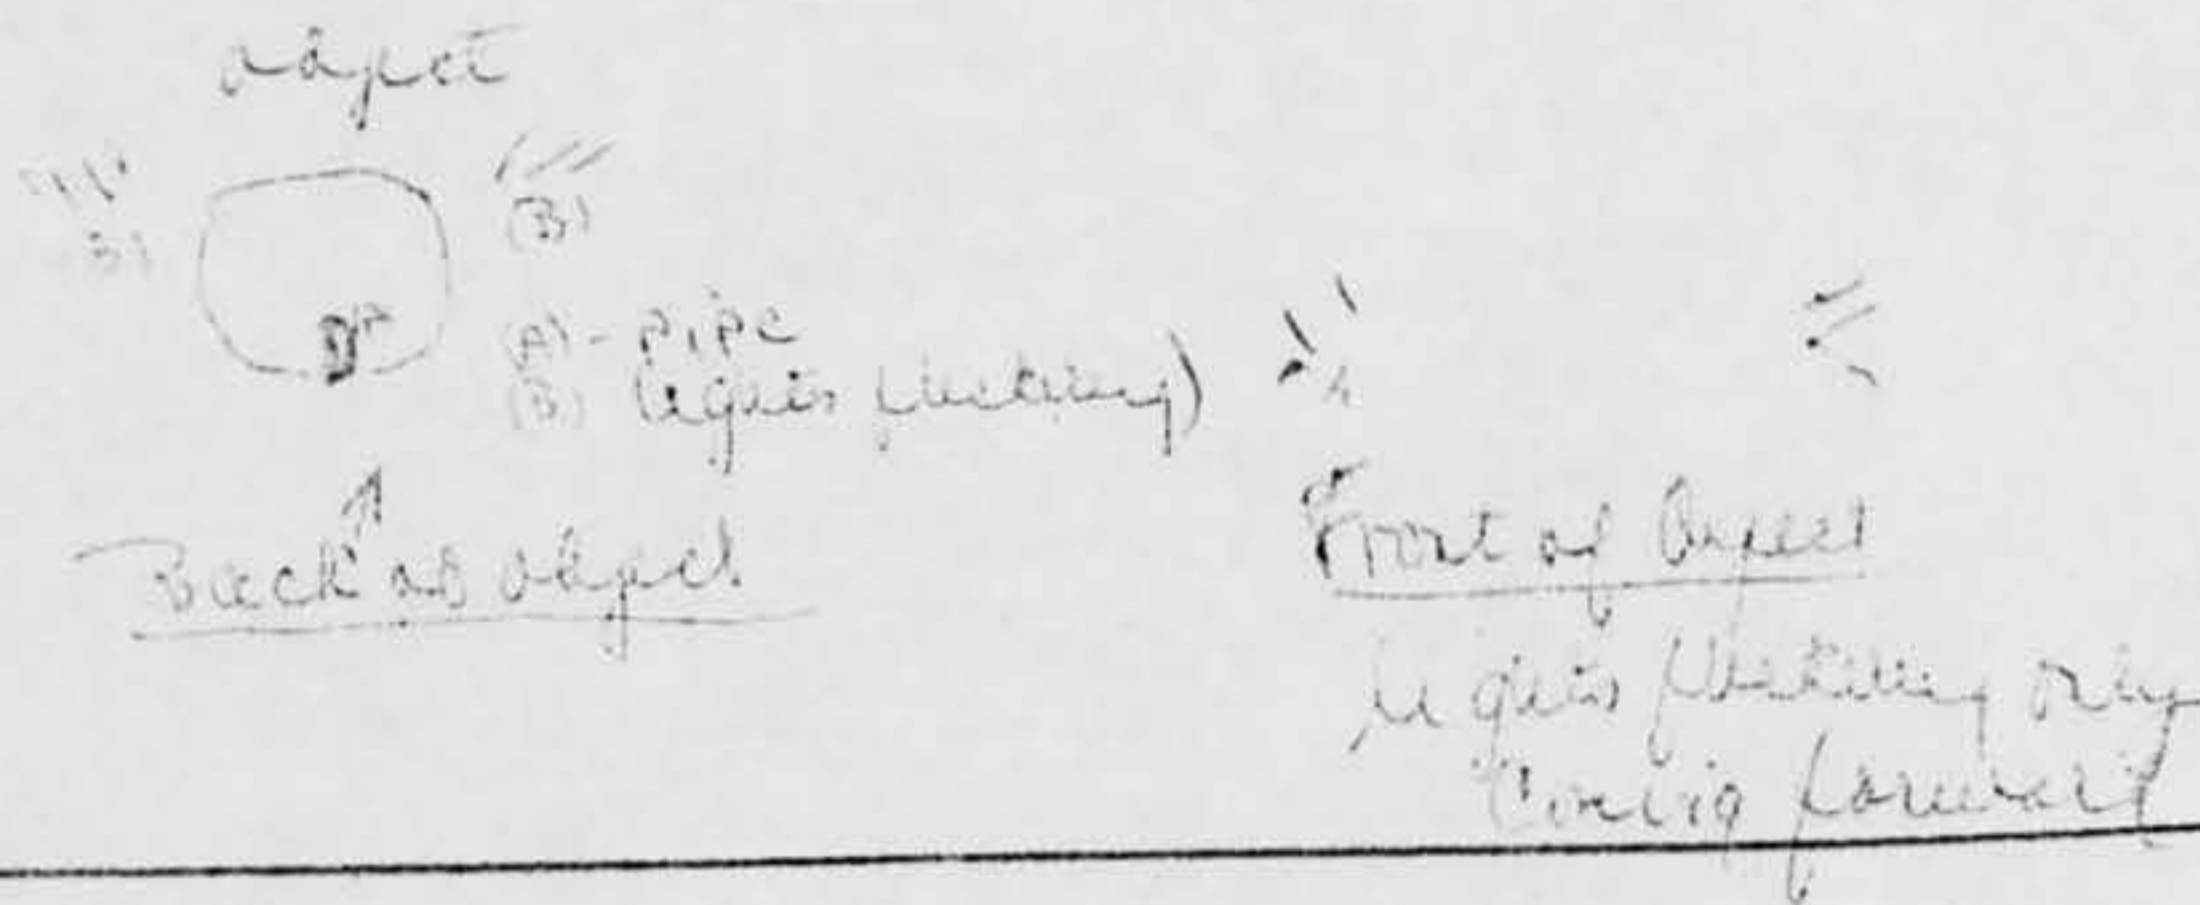 object
(B)
B)
A
(A) - Pipe
(B) lights flickering)
Back of object
Front of Object
lights flickering only
Coming forward